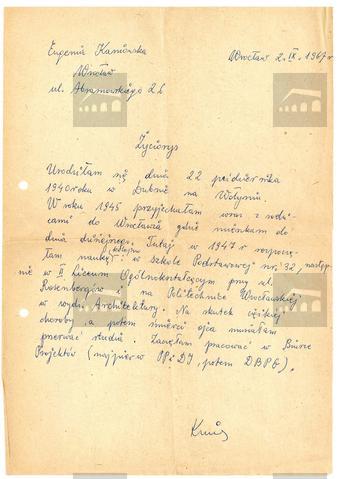 Eugenia Kamińska
Wrocław 2.IX.1967 r
Wrocław
ul. Abramowskiego 26
Życiorys
Urodziłam się dnia 22 października
1940 roku w Dubnie na Wołyniu.
W roku 1945 przyjechałam wraz z rodzi-
cami do Wrocławia gdzie mieszkam do
dnia dzisiejszego. Tutaj w 1947 r rozpoczę-
łam naukę kolejno: w szkole Podstawowej nr 32, następ-
nie w II Liceum Ogólnokształcącym przy ul.
Rosenbergów i na Politechnice Wrocławskiej
w wydz. Architektury. Na skutek ciężkiej
choroby, a potem śmierci ojca musiałam
przerwać studia. Zaczęłam pracować w Biurze
Projektów (najpierw PP i DJ, potem DBPG).